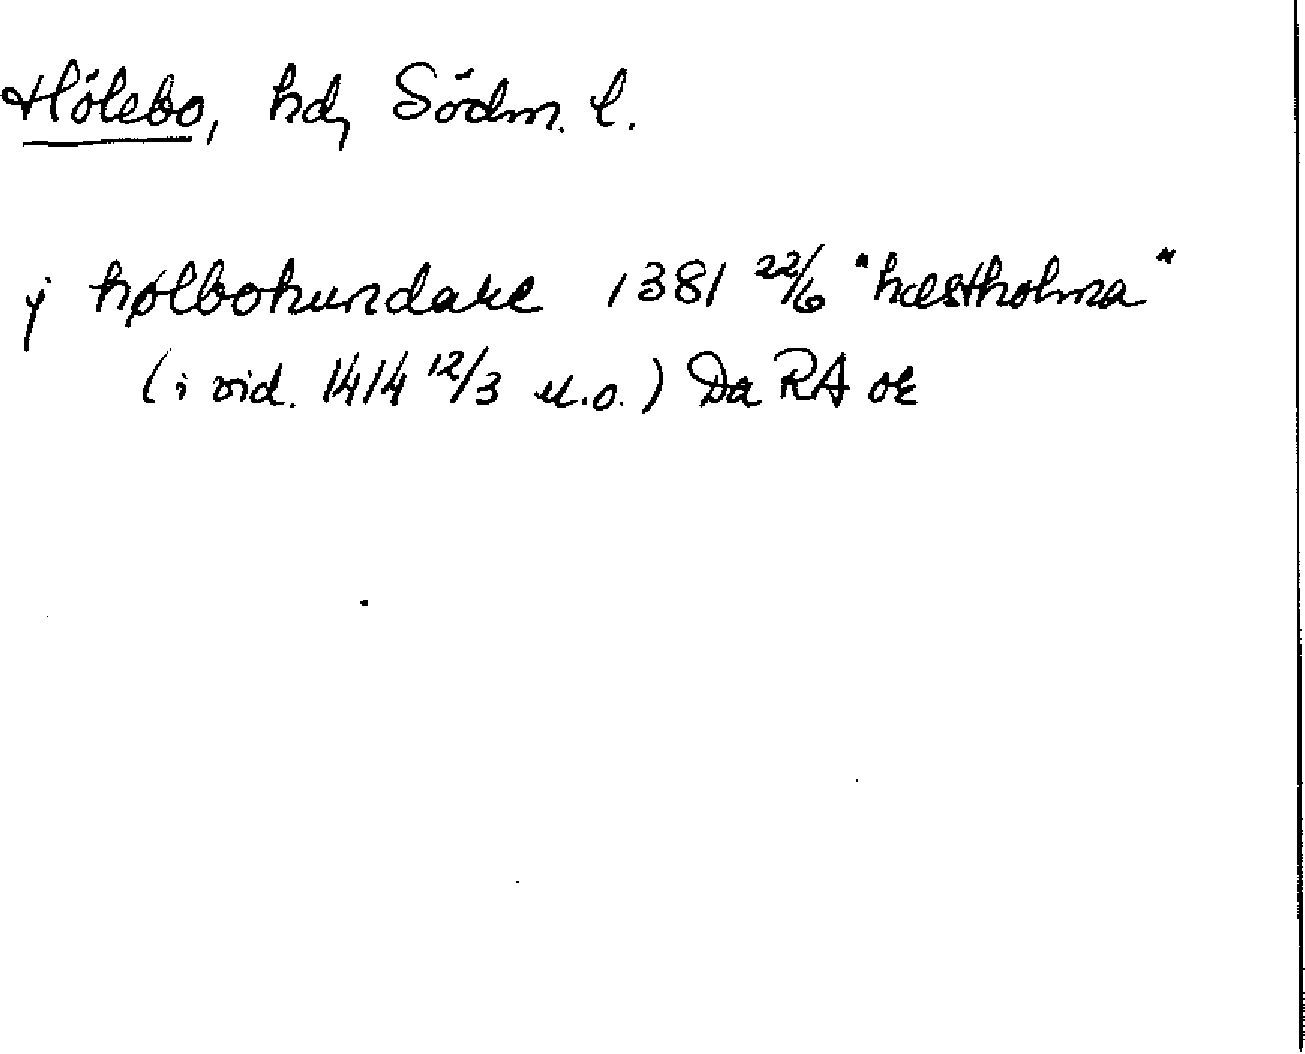 Hölebo, hd, Södm. l.
j hølbohundare 1381 22/6 "hæstholma"
(i vid. 1414 12/3 u.o.) Da RA or